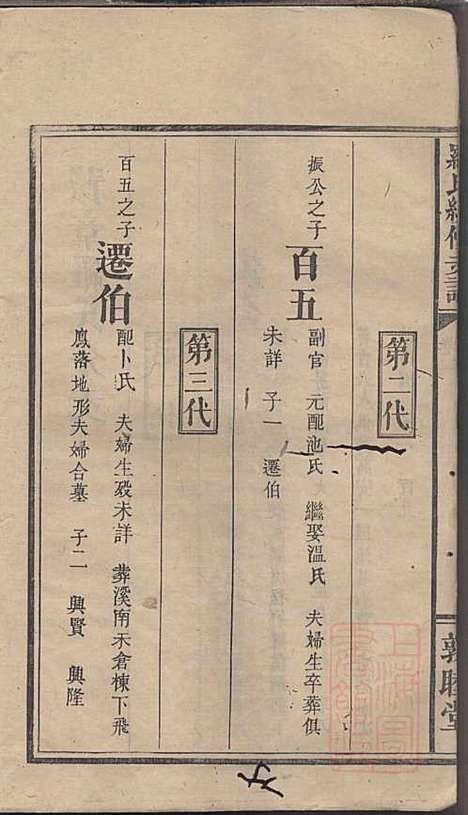 羅氏續修支譜
敦睦堂
第二代
振公之子
百五
副官 元配池氏 繼娶溫氏 夫婦生卒葬俱
未詳 子一 遷伯
第三代
百五之子
遷伯
配卜氏 夫婦生殁未詳 葬溪南禾倉棟下飛
鳳落地形夫婦合墓 子二 興賢 興隆